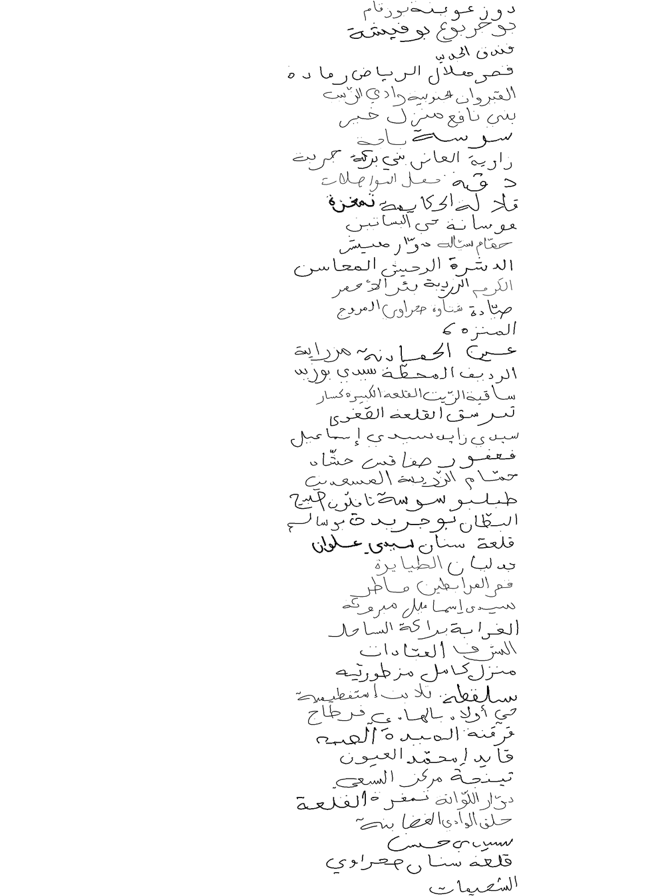 دوز عوينة نورقام
بو جربوع بو فيشة
فندق الجديد
قصر هلال الرياض رمادة
القيروان جنوبية وادي الزيت
بني نافع منزل خير
سوسة باجة
زاوية العانس بني بركة جربة
دقة معمل المواصلات
قلالة الحكايمة تمغزة
موسانة حي البساتين
حمام سيالة دوار
الدشرة الرحيبى المحاسن
الكريم الزريبة بئر الأحمر
صيادة شناوة صحراوي المروج
المنزه 6
عين الحمادنة مزراية
الرديف المحطة سيدي بوزيد
ساقية الزيت القلعة الكبيرة كسار
تبرسق القلعة الصغرى
سيدي زايد سيدي إسماعيل
قعفور صفاقس حشاد
حمام الزريبة السعيدي
طبلبو سوسة تاكلوب
البطان بو جريدة بوسالم
قلعة سنان سيدي علوان
جدليان الطيايرة
قصر المرابطين ماطر
سيدي إسماعيل مبروكة
الغرابة براكة الساحل
الشرف العتادات
منزل كامل مزطورية
سلقطة تلابت
حي أولاد بالهادي قرطاج
قرقنة المبدة
قايد امحمد العيون
تينجة مركز السعي
دوار اللواتة تمغزة القلعة
حلق الوادي الغضابنة
سيدي حسن
قلعة سنان صحراوي
الشعيبات